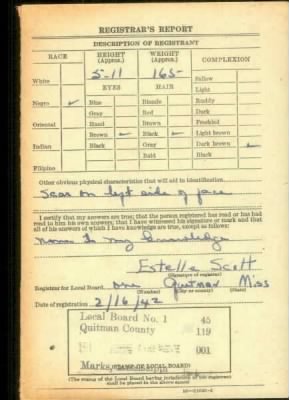 REGISTRAR'S REPORT
DESCRIPTION OF REGISTRANT
RACE HEIGHT (Approx.) WEIGHT (Approx.) COMPLEXION
White 5-11 165- Sallow
EYES HAIR Light
Negro ✓ Blue Blonde Ruddy
Gray Red Dark
Oriental Hazel Brown Freckled
Brown ✓ Black ✓ Light brown
Indian Black Gray Dark brown ✓
Bald Black
Filipino
Other obvious physical characteristics that will aid in identification
Scar on left side of face
I certify that my answers are true; that the person registered has read or has had
read to him his own answers; that I have witnessed his signature or mark and that
all of his answers of which I have knowledge are true, except as follows:
None to my knowledge
Estelle Scott
(Signature of registrar)
Registrar for Local Board one Quitman Miss
(Number) (City or county) (State)
Date of registration 2/16/42
Local Board No. 1 45
Quitman County 119
001
Marks,
(STAMP OF LOCAL BOARD)
(The stamp of the Local Board having jurisdiction of the registrant
shall be placed in the above space)